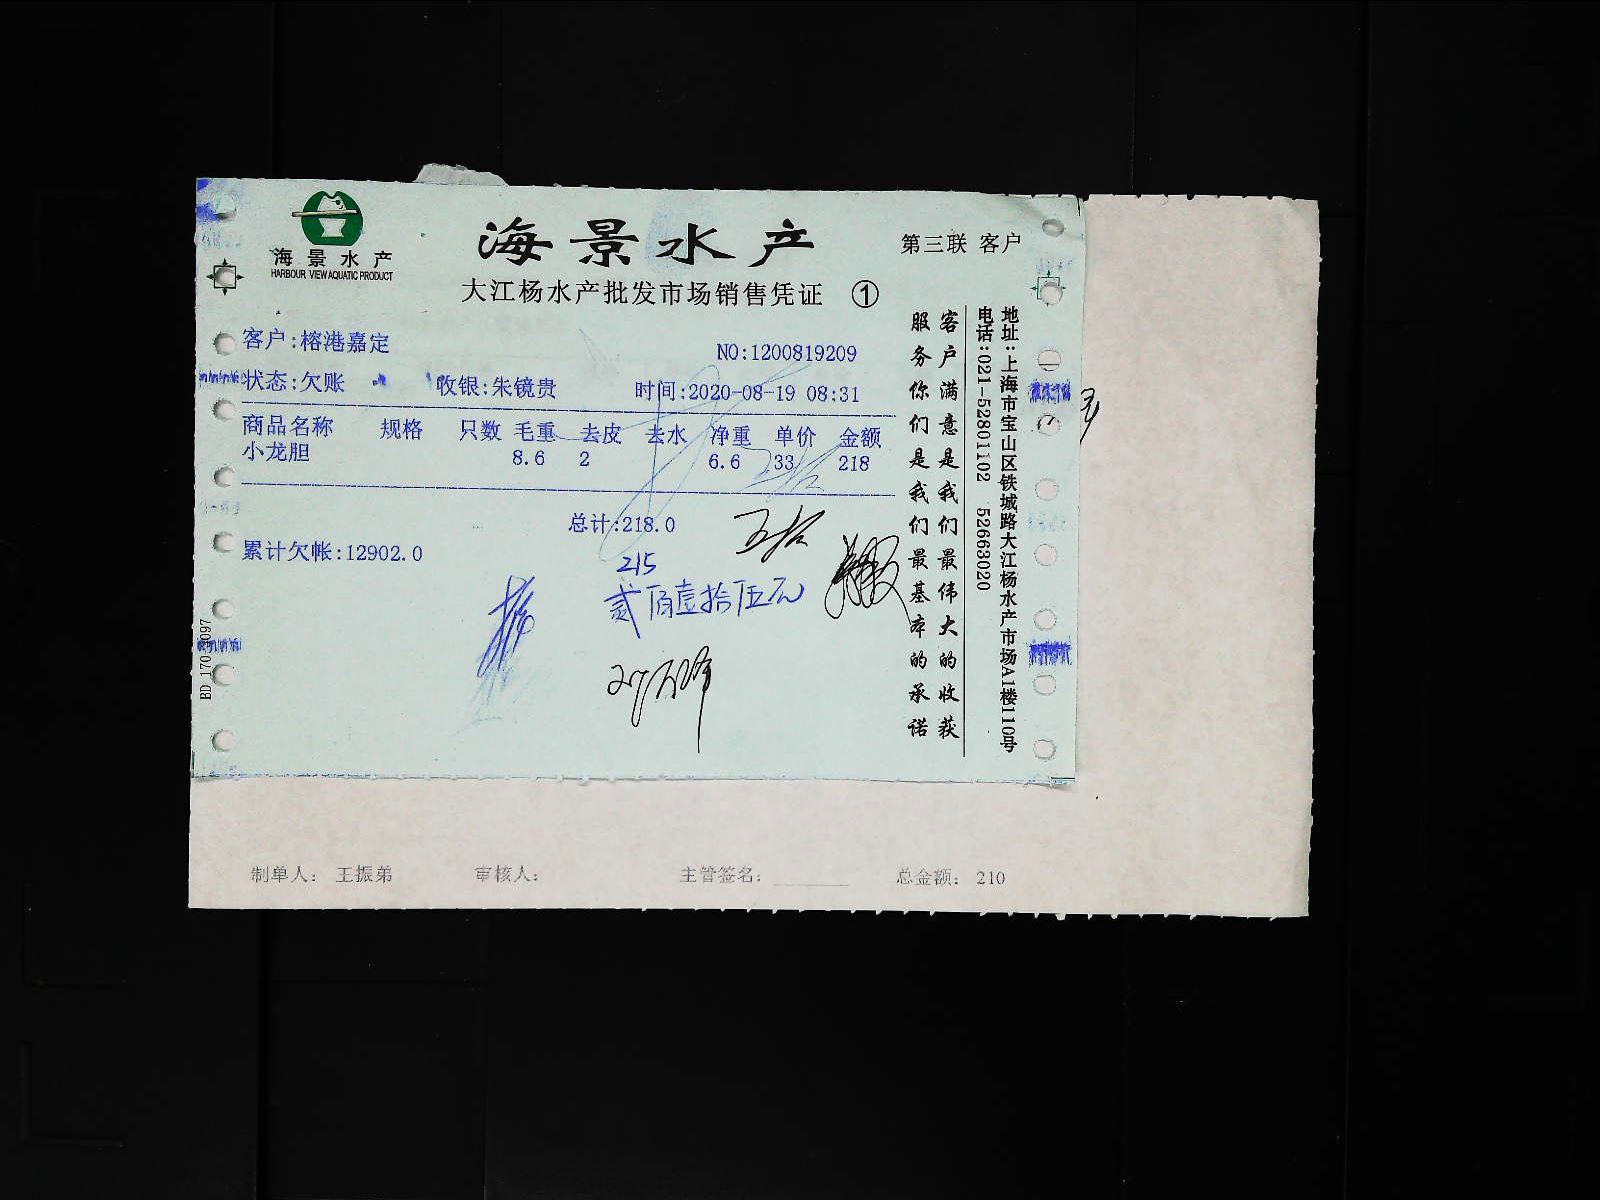 海景水产
HARBOUR VIEW AQUATIC PRODUCT
海景水产
第三联 客户
大江杨水产批发市场销售凭证 ①
客户:榕港嘉定
NO:1200819209
状态:欠账 收银:朱镜贵 时间:2020-08-19 08:31
商品名称 规格 只数 毛重 去皮 去水 净重 单价 金额
小龙胆 8.6 2 6.6 33 218
总计:218.0
累计欠帐:12902.0
215
贰佰壹拾伍元
客户满意是我们最伟大的收获
服务你们是我们最基本的承诺
地址:上海市宝山区铁城路大江杨水产市场A1楼110号
电话:021-52801102 52663020
制单人: 王振弟 审核人: 主管签名: 总金额: 210